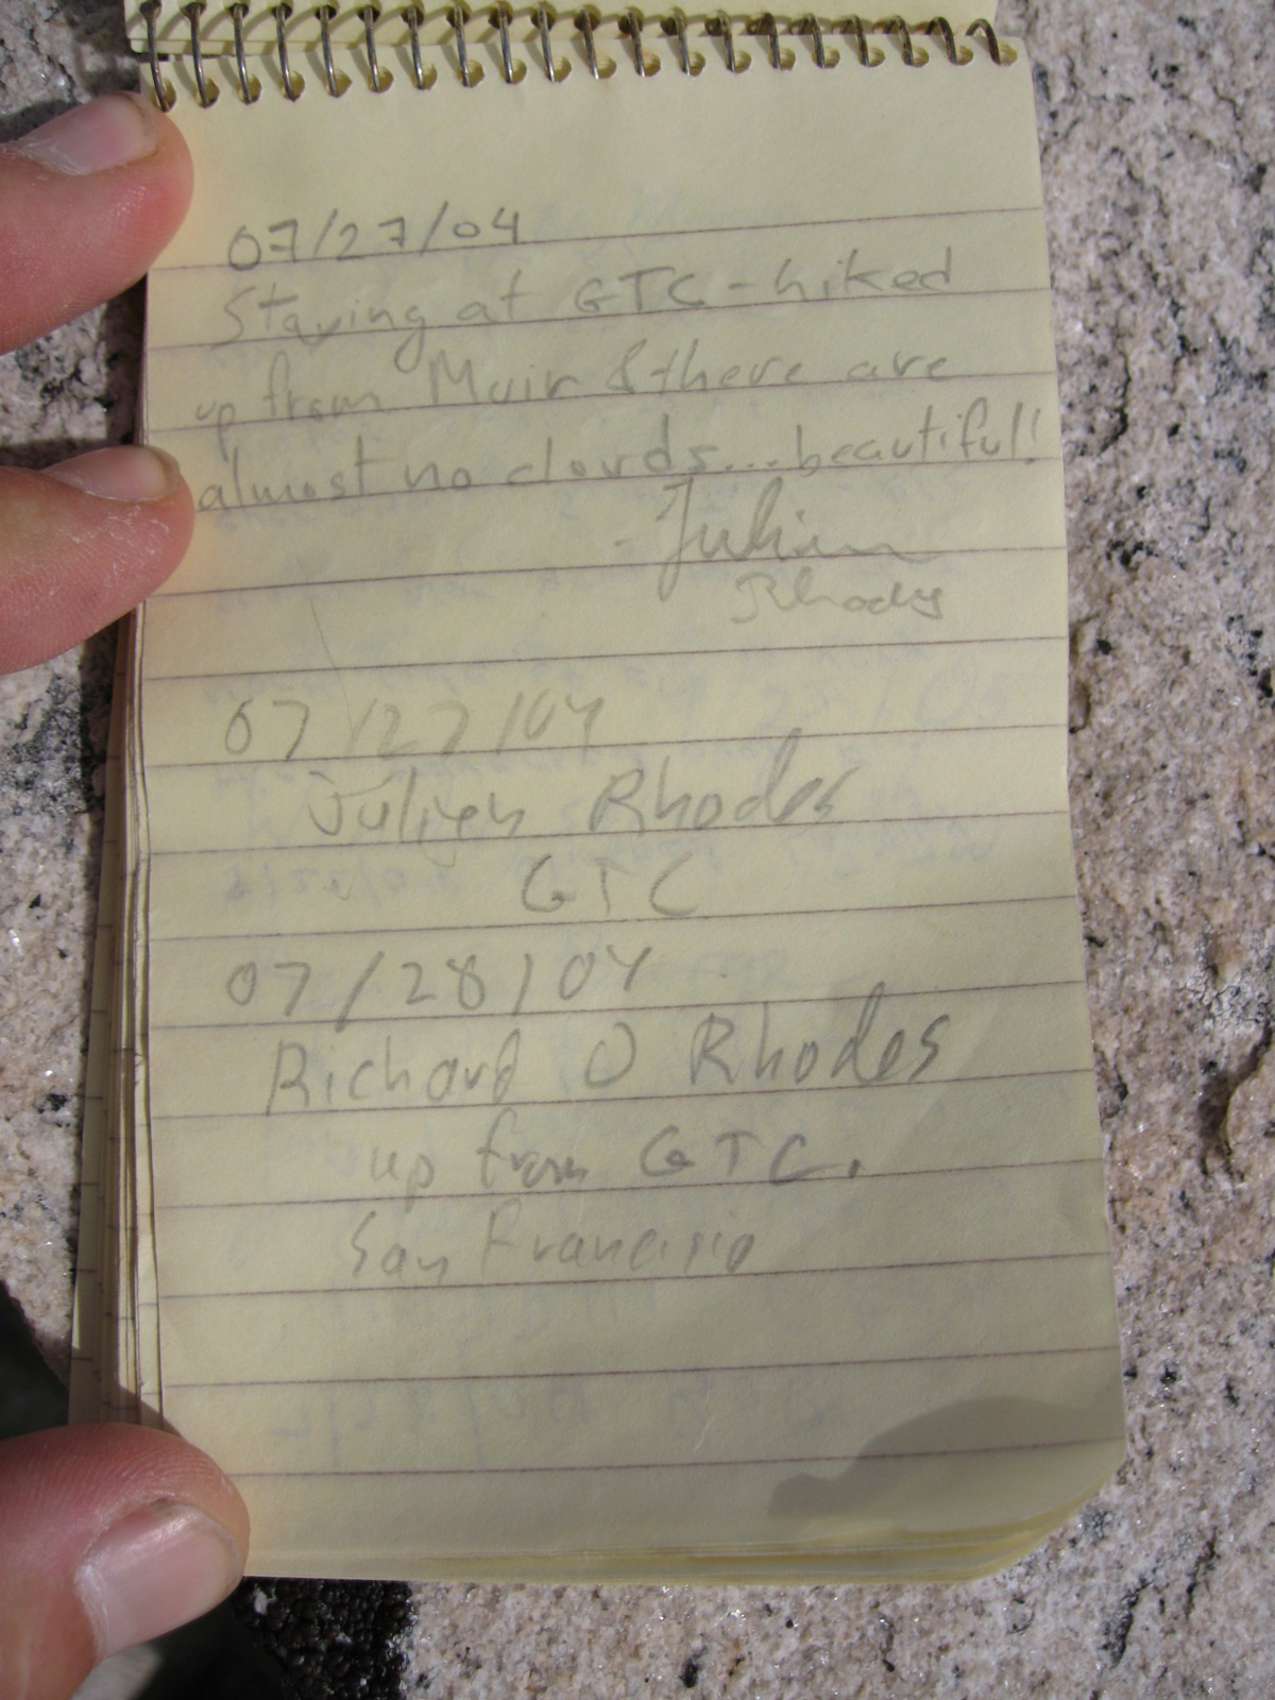 07/27/04
Staying at GTC - hiked
up from Muir & there are
almost no clouds... beautiful!
- Julian
Rhodes
07/27/04
Julien Rhodes
GTC
07/28/04
Richard O Rhodes
up from GTC.
San Francisco